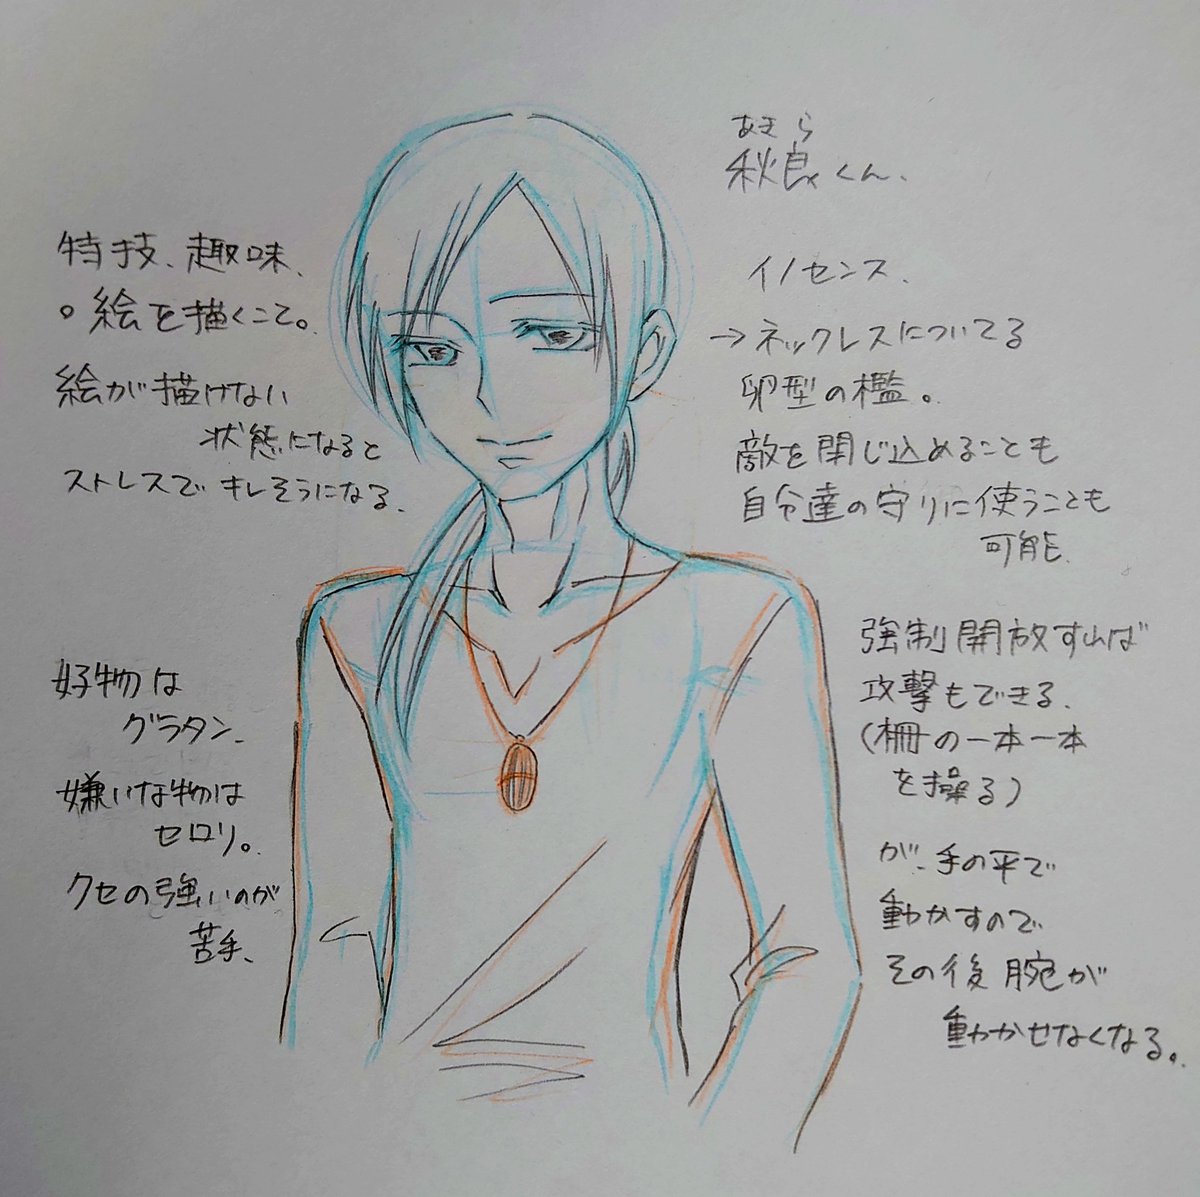 あきら
秋良くん、
特技、趣味、
○絵を描くこと。
絵が描けない
状態になると
ストレスでキレそうになる、
イノセンス、
→ネックレスについてる
卵型の檻。
敵を閉じ込めることも
自分達の守りに使うことも
可能、
強制開放すれば
攻撃もできる、
(柵の一本一本
を操る)
が、手の平で
動かすので
その後腕が
動かせなくなる。
好物は
グラタン、
嫌いな物は
セロリ。
クセの強いのが
苦手、